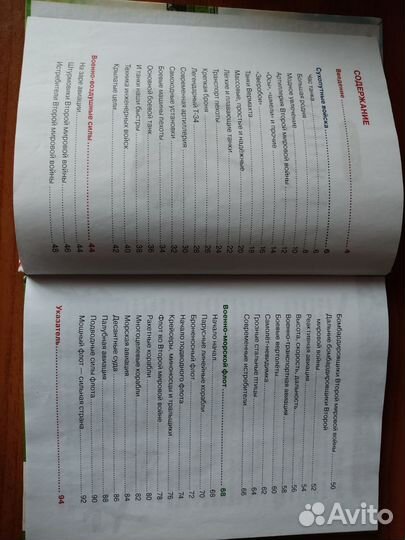 СОДЕРЖАНИЕ
Введение 4
Сухопутные войска 6
Рождение танка 6
Большая родня 8
Мощное увлечение 10
Артиллерия Второй мировой войны 12
«Осы», «шмели» и прочие 14
«Зверобои» 16
Танки Вермахта 18
Массовые, простые и надёжные 20
Лёгкие и плавающие танки 22
Транспорт пехоты 24
Крепкая броня 26
Легендарный Т-34 28
Современная артиллерия 30
Самоходные установки 32
Боевые машины пехоты 34
Основной боевой танк 36
И танки наши быстры 38
Техника инженерных войск 40
Крылатые цели 42
Военно-воздушные силы 44
На заре авиации 44
Штурмовики Второй мировой войны 46
Истребители Второй мировой войны 48
Бомбардировщики Второй мировой войны 50
Дальние бомбардировщики Второй
мировой войны 52
Реактивная авиация 54
Высота, скорость, дальность 56
Военно-транспортная авиация 58
Боевые вертолёты 60
Самолёт-невидимка 62
Грозные стальные птицы 64
Современные истребители 66
Военно-морской флот 68
Начало начал 68
Парусные линейные корабли 70
Броненосный флот 72
Начало подводного флота 74
Крейсеры, миноносцы и тральщики 76
Флот во Второй мировой войне 78
Ракетные корабли 80
Многоцелевые корабли 82
Морская авиация 84
Десантные суда 86
Палубная авиация 88
Подводные силы флота 90
Мощный флот — сильная страна 92
Указатель 94
Avito